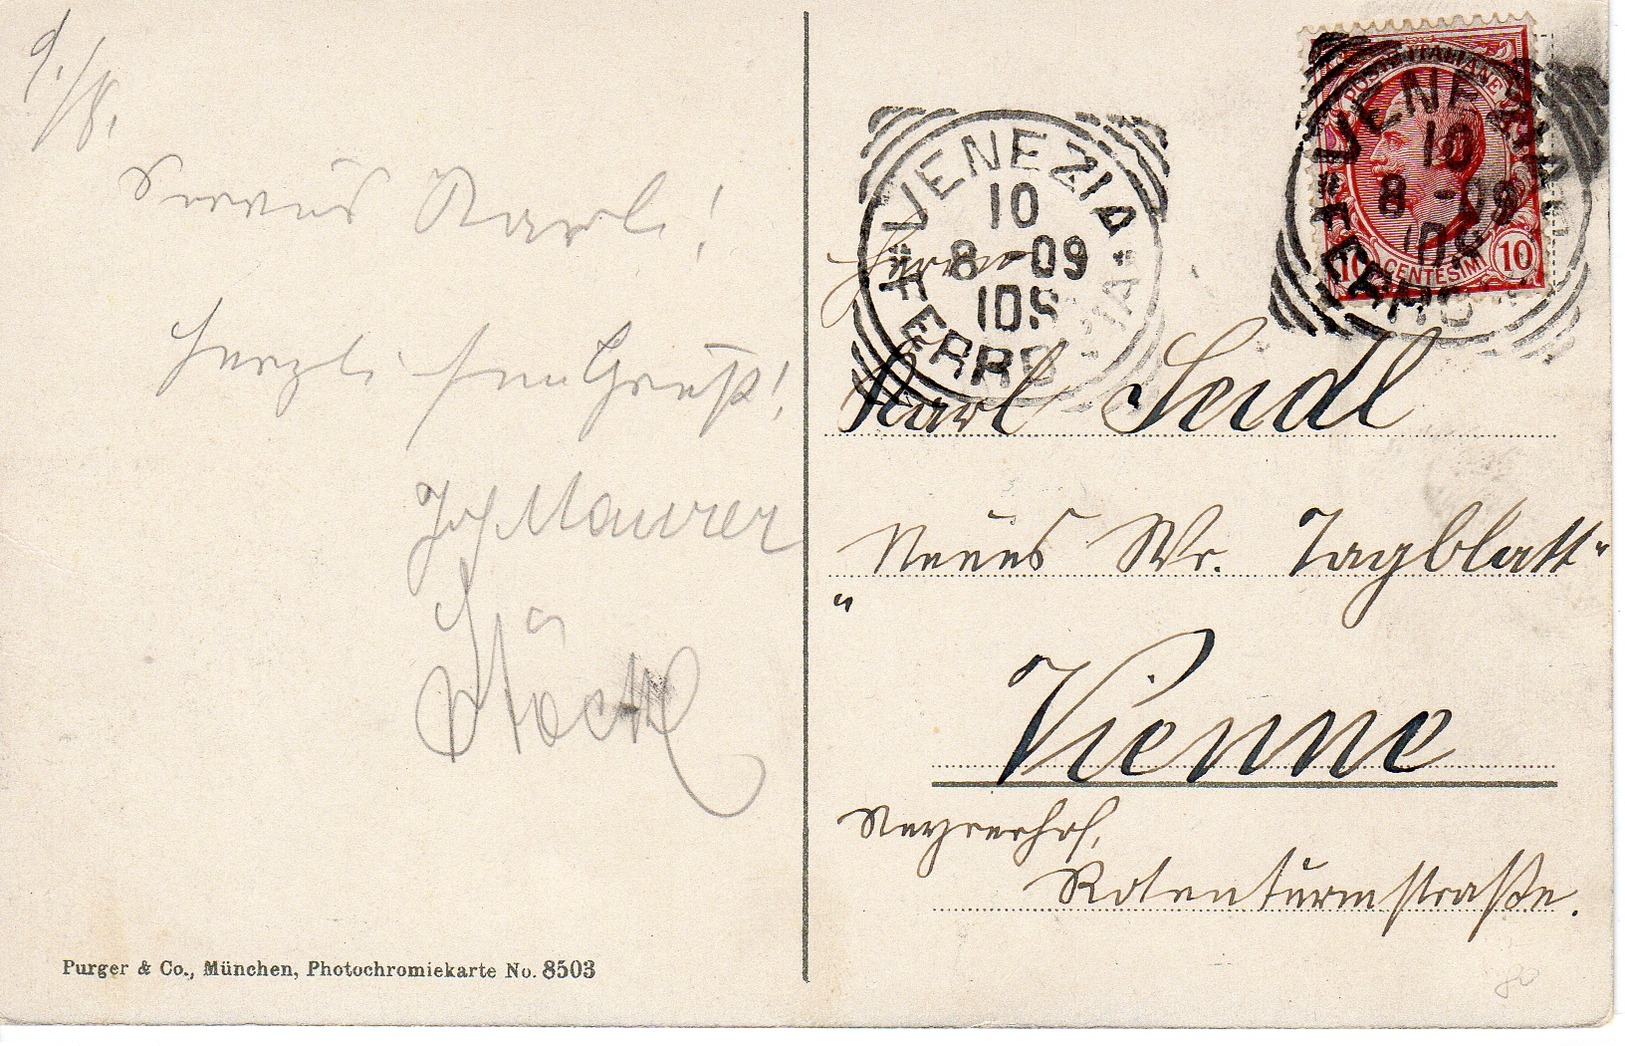 9./8.
Servus Karl!
Herzlichen Gruß!
Jos Maurer
Stöckl
Purger & Co., München, Photochromiekarte No. 8503
POSTE ITALIANE
10 CENTESIMI 10
VENEZIA
10
8 - 09
10S
FERROVIA
VENEZIA
10
8 - 09
10S
FERROVIA
Herrn
Karl Seidl
Neues Wr. Tagblatt"
"
Vienne
Steyrerhof,
Rotenturmstraße.
80